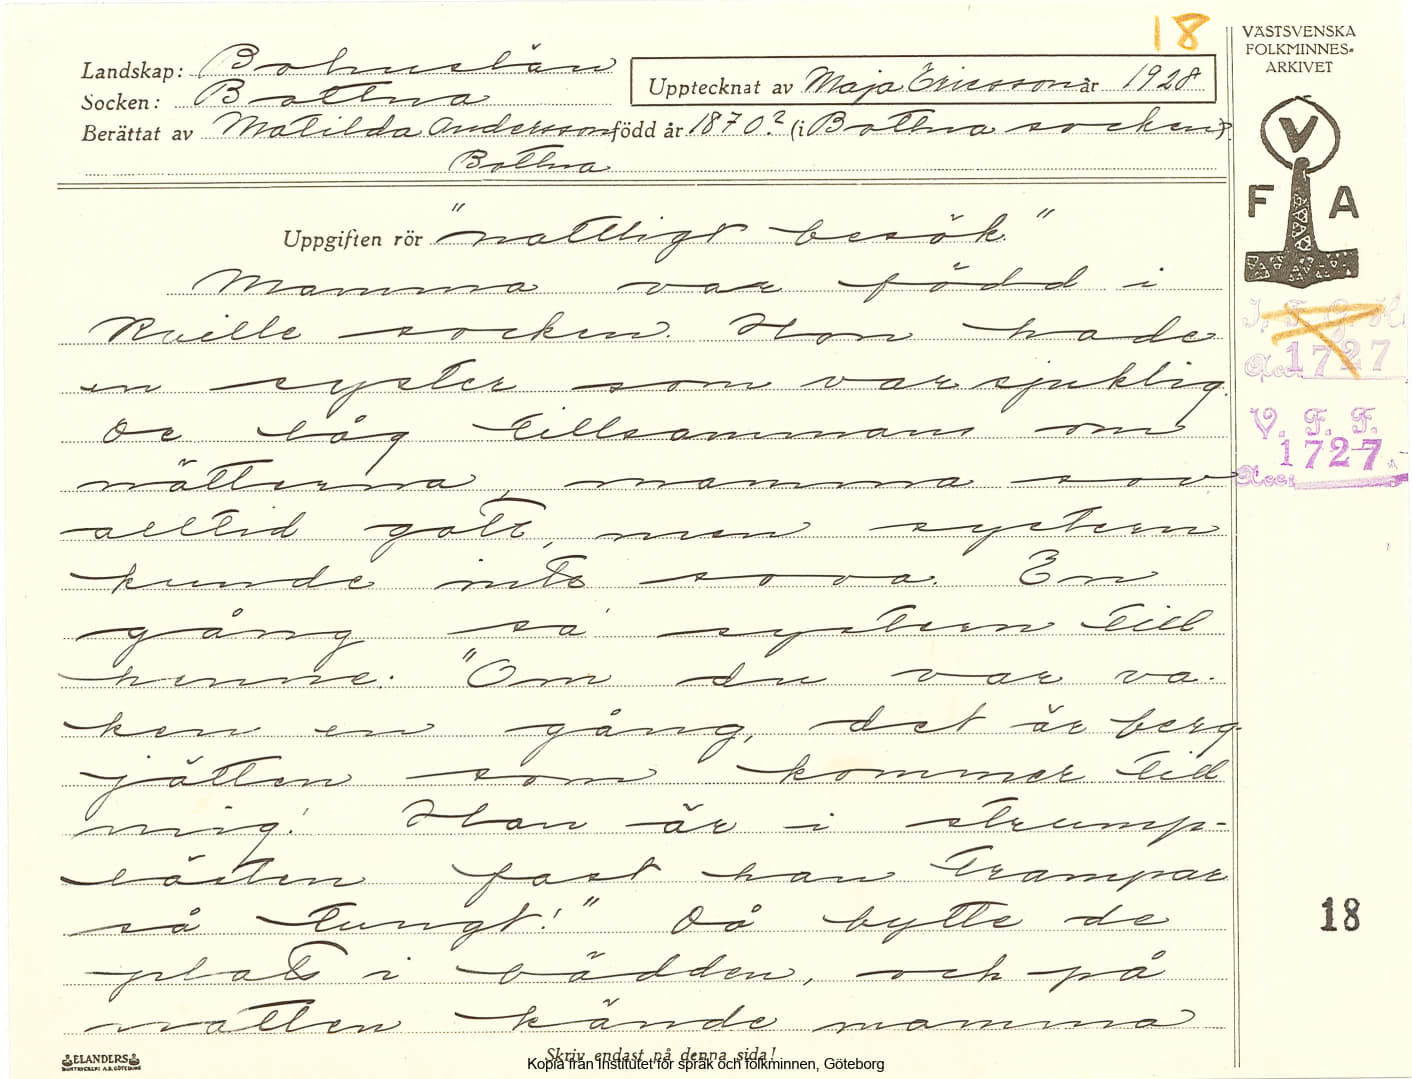 18
VÄSTSVENSKA
FOLKMINNES-
ARKIVET
Landskap: Bohuslän
Socken: Bottna
Upptecknat av Maja Ericsson år 1928
Berättat av Matilda Andersson född år 1870? (i Bottna socken).
Bottna
V
F A
Uppgiften rör "nattligt besök"
Mamma var född i
Kville socken. Hon hade
en syster som var sjuklig.
De låg tillsammans om
nätterna, mamma sov
alltid gott, men systern
kunde inte sova. En
gång sa systern till
henne: "Om du var va-
ken en gång, det är berg-
jätten som kommer till
mig! Han är i strump-
lästen fast han trampar
så tungt!" Då bytte de
plats i bädden, och på
natten kände mamma
I. F. G. H.
Acc. 1727
V. F. F.
1727
Acc:
18
ELANDERS
BOKTRYCKERI A.B. GÖTEBORG
Skriv endast på denna sida!
Kopia från Institutet för språk och folkminnen, Göteborg